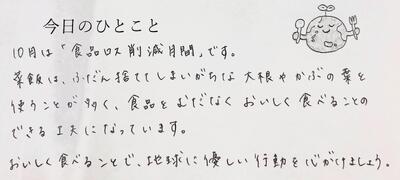 今日のひとこと
10月は「食品ロス削減月間」です。
菜飯は、ふだん捨ててしまいがちな大根やかぶの葉を
使うことが多く、食品をむだなくおいしく食べることの
できる工夫になっています。
おいしく食べることで、地球に優しい行動を心がけましょう。